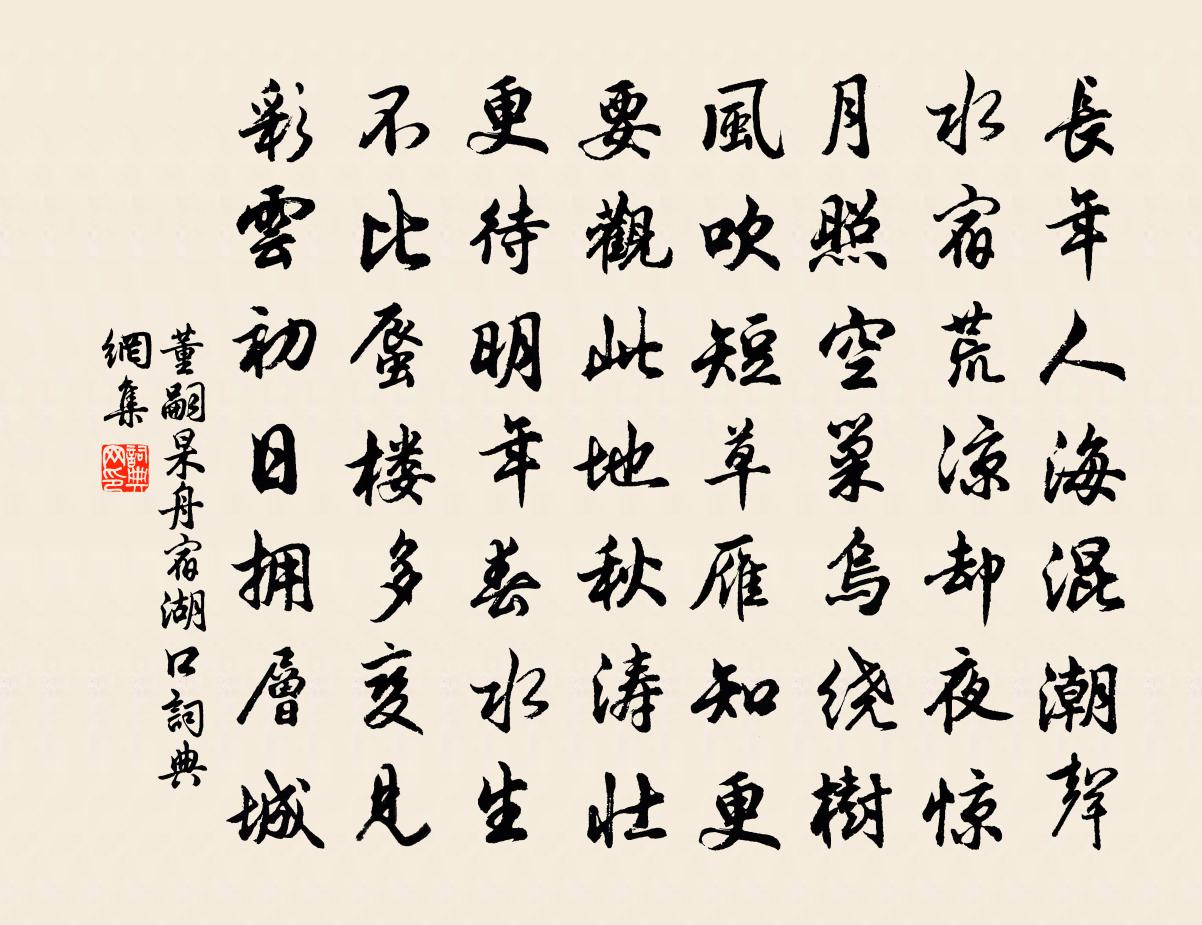 長年人海混潮聲
水宿荒凉却夜惊
月照空巢烏绕樹
風吹短草雁知更
要觀此地秋涛壮
更待明年春水生
不比蜃楼多变見
彩雲初日拥層城
董嗣杲舟宿湖口詞典
網集
詞典网印